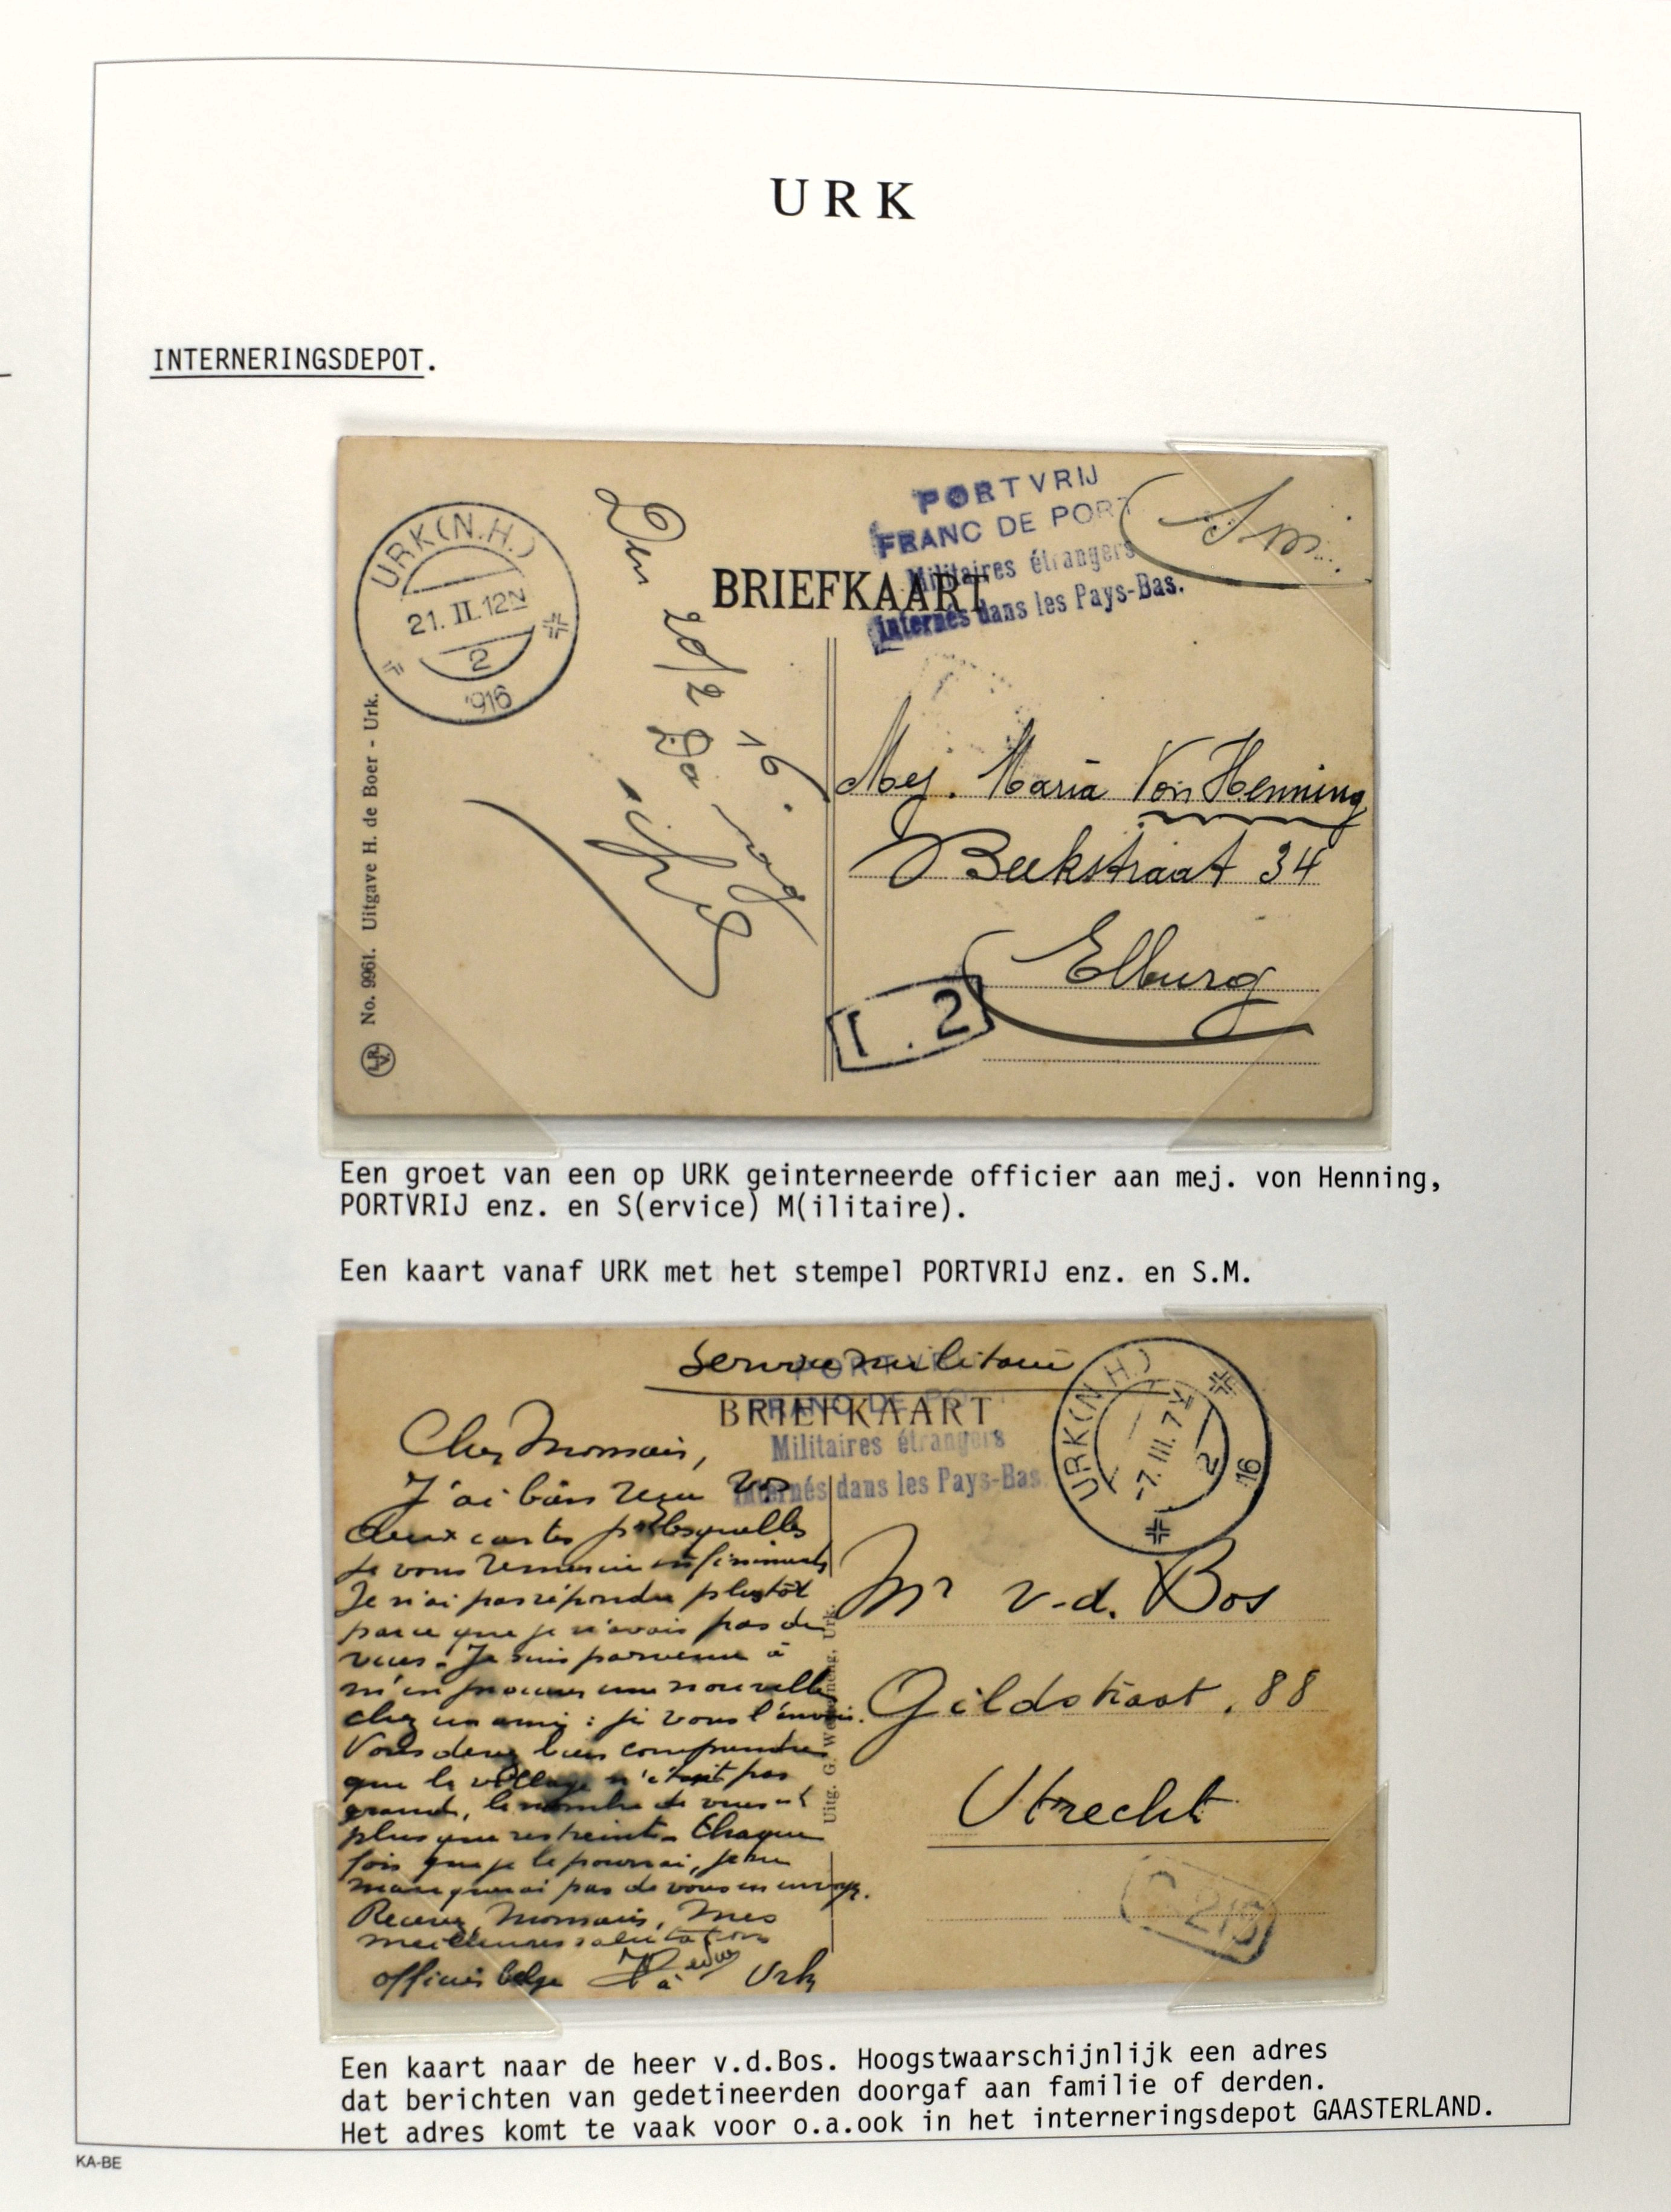 URK
INTERNERINGSDEPOT.
URK (N.H.)
21. II. 12N
2
916
PORTVRIJ
FRANC DE PORT
Militaires étrangers
internés dans les Pays-Bas.
S.M.
BRIEFKAART
20/2 16
No. 9961. Uitgave H. de Boer - Urk.
Mej. Maria Von Henning
Beekstraat 34
Elburg
I. 2
Een groet van een op URK geinterneerde officier aan mej. von Henning,
PORTVRIJ enz. en S(ervice) M(ilitaire).
Een kaart vanaf URK met het stempel PORTVRIJ enz. en S.M.
Service militaire
PORTVRIJ
FRANC DE PORT
BRIEFKAART
Militaires étrangers
internés dans les Pays-Bas.
URK (N.H.)
-7. III. 7V
2
16
J'ai bien reçu vos
deux cartes pr lesquelles
je vous remercie infiniment
Je n'ai pas répondu plustôt
parce que je n'avais pas de
vues. Je suis parvenu à
m'en procurer une nouvelle
chez un ami : je vous l'envoie.
Vous devez bien comprendre
que le village n'étant pas
grand, le nombre de vues est
plus que restreint. Chaque
fois que je le pourrai, je ne
manquerai pas de vous en envoyer.
Recevez, mes
meilleures salutations
officier belge à Urk
Uitg. G. Urk.
Mr v.d. Bos
Gildstraat. 88
Utrecht
Een kaart naar de heer v.d.Bos. Hoogstwaarschijnlijk een adres
dat berichten van gedetineerden doorgaf aan familie of derden.
Het adres komt te vaak voor o.a.ook in het interneringsdepot GAASTERLAND.
KA-BE